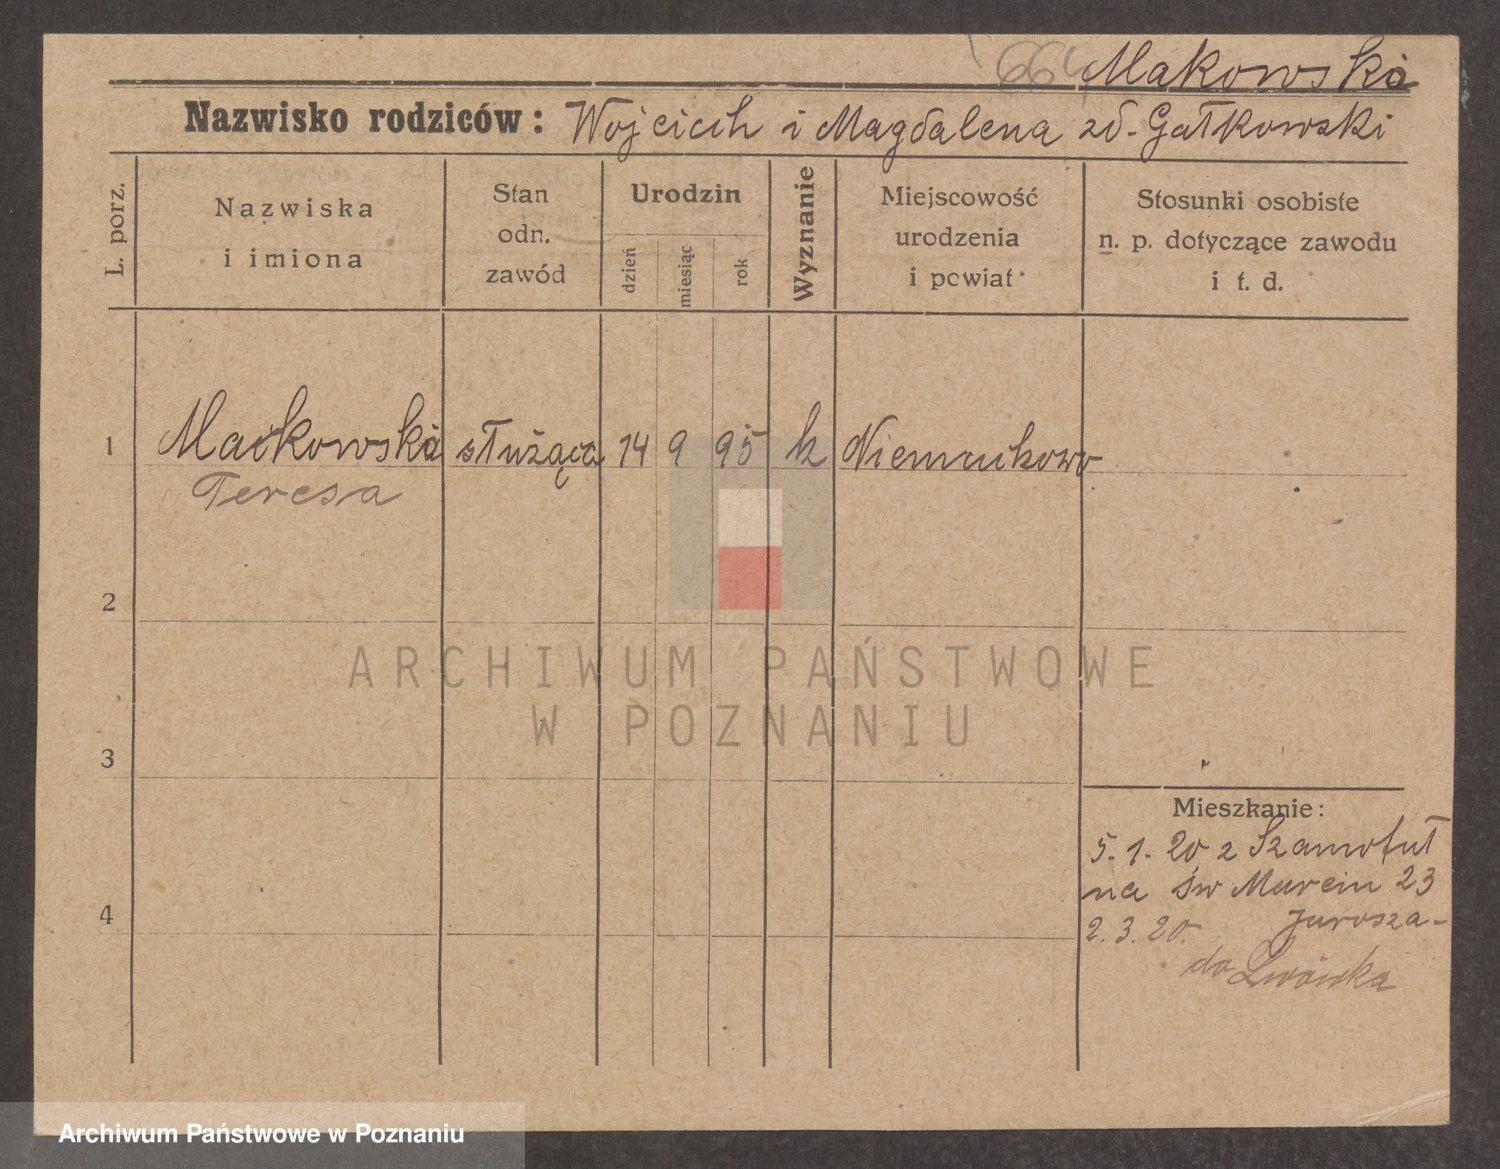 664 Makowska
Nazwisko rodziców: Wojciech i Magdalena zd. Gałkowski
L. porz.
Nazwiska
i imiona
Stan
odn.
zawód
Urodzin
dzień
miesiąc
rok
Wyznanie
Miejscowość
urodzenia
i powiat
Stosunki osobiste
n. p. dotyczące zawodu
i t. d.
1 Maćkowska służąca 14 9 95 k
Teresa
2
3
4
Mieszkanie:
5. 1. 20 z Szamotuł
na św Marcin 23
2. 3. 20. Jarosza-
do Lwówka
ARCHIWUM PAŃSTWOWE
W POZNANIU
Archiwum Państwowe w Poznaniu